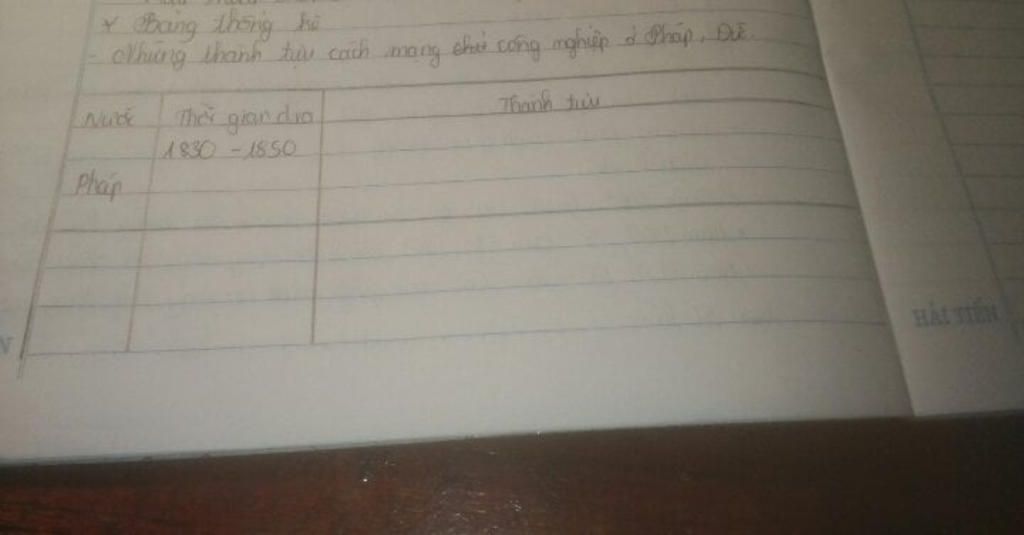 * Bảng thống kê
- Những thành tựu cách mạng chủ công nghiệp ở Pháp, Đức.
Nước Thời gian dra Thành tựu
1830 - 1850
Pháp
HẢI TIẾN